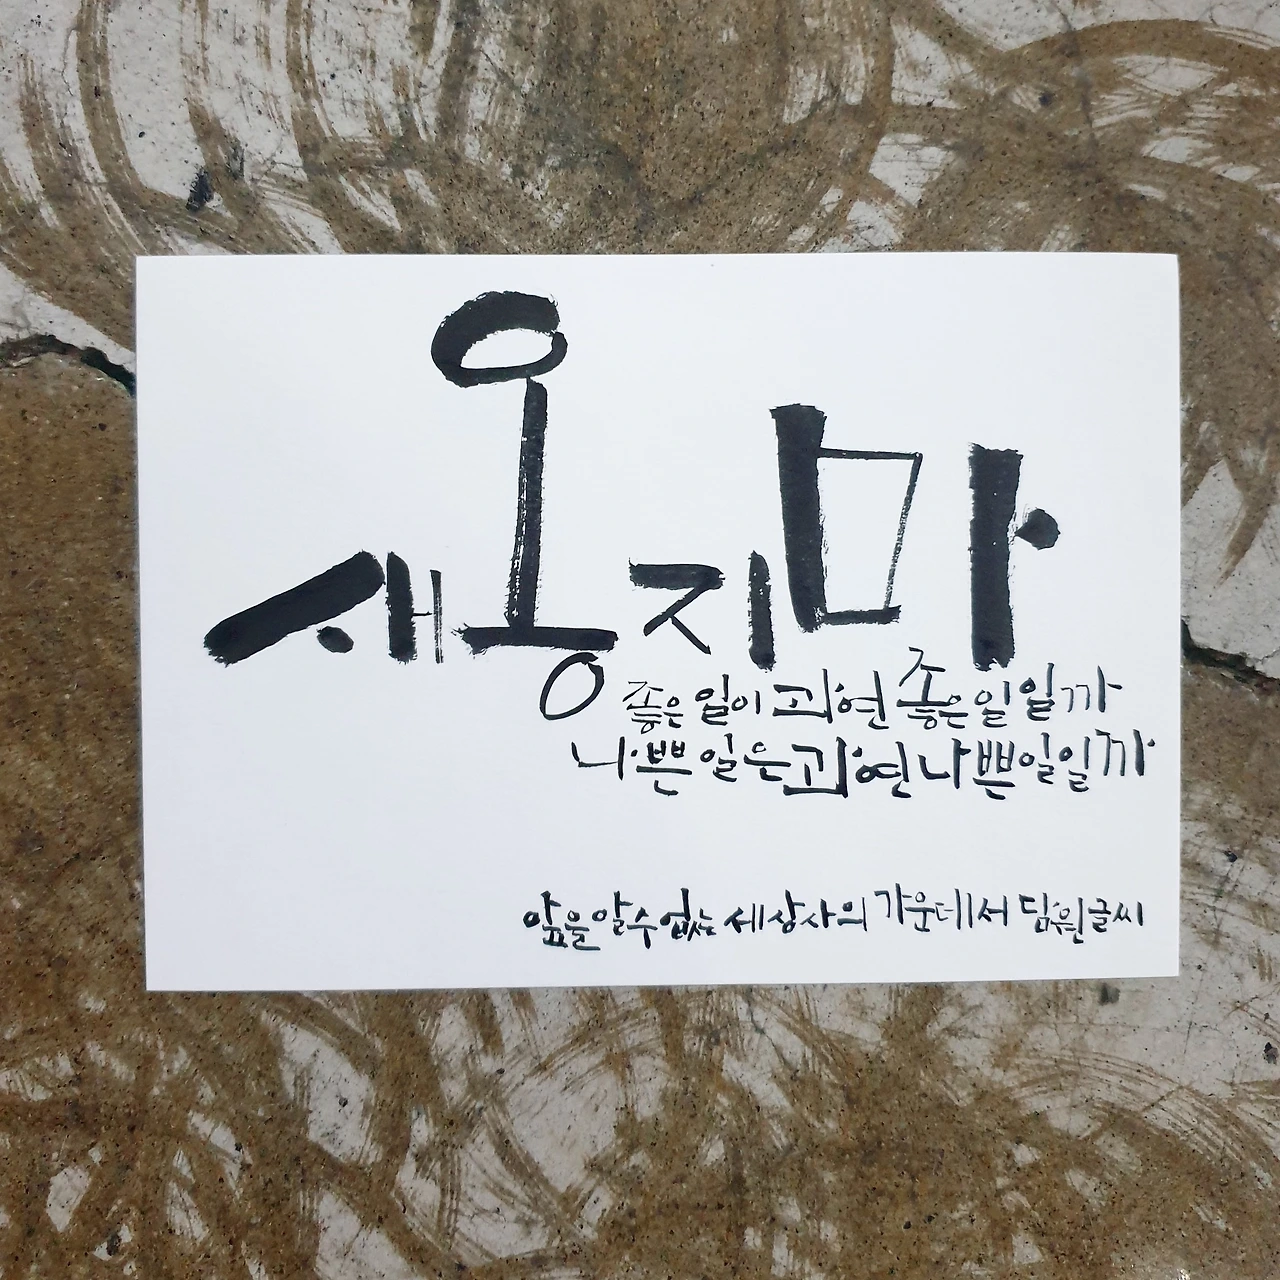 새옹지마
좋은 일이 괴연 좋은 일일까
나쁜 일은 괴연 나쁜 일일까
앞을 알 수 없는 세상사의 가운데서 담흰글씨